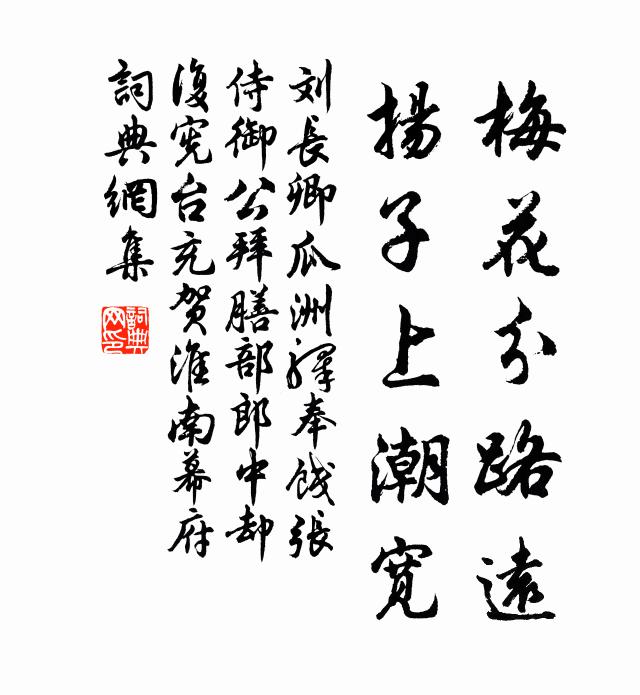 梅花分路遠
揚子上潮寬
刘長卿瓜洲驛奉餞張
侍御公拜膳部郎中却
復宪台充贺淮南幕府
詞典網集
詞典
网印